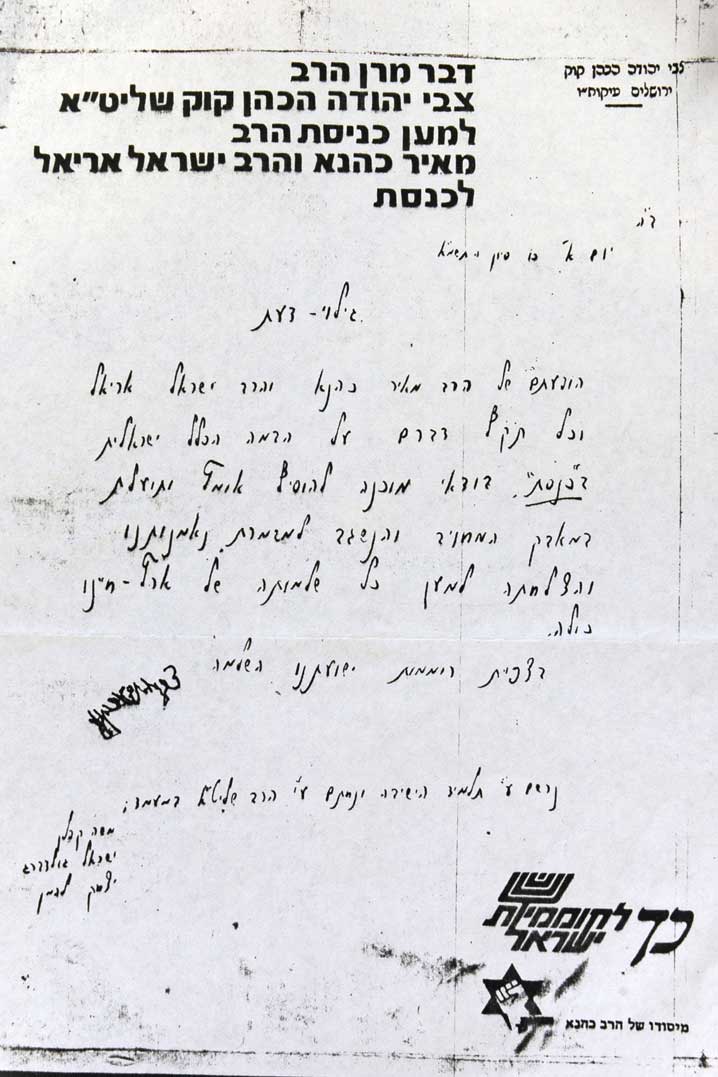 דבר מרן הרב
צבי יהודה הכהן קוק שליט"א
למען כניסת הרב
מאיר כהנא והרב ישראל אריאל
לכנסת
צבי יהודה הכהן קוק
ירושלים עיקוח"ו
ב"ה
יום א' כו סיון התשמ"א
גילוי - דעת
הופעתם של הרב מאיר כהנא והרב ישראל אריאל
וכל תקף דברם על הבמה הכלל ישראלית
ב"כנסת", בודאי מוכנה להוסיף אומץ ותועלת
במאבק המחויב והנשגב למזמרת נאמנותנו
והצלחתה למען כל שלמותה של ארץ-חיינו
כולה.
בצפית רוממות ישועתנו השלמה
נרשם ע"י תלמידי הישיבה ונחתם ע"י הרב שליט"א במעמד:
משה קפלן
ישראל גולדברג
יצחק להמן
כך
לקוממיות
ישראל
מיסודו של הרב כהנא